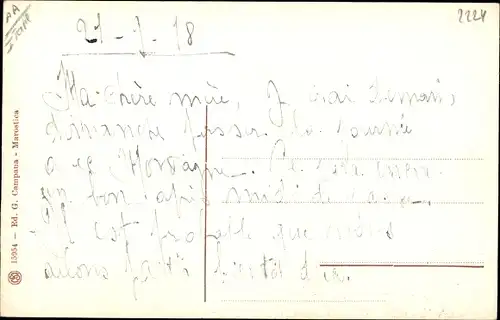 2224
21-7-18
Ma chère mère, J'irai demain,
dimanche passer la journée
avec
un bon après midi de
Il est probable que nous
allons partir bientôt d'ici.
15954 — Ed. G. Campana - Marostica